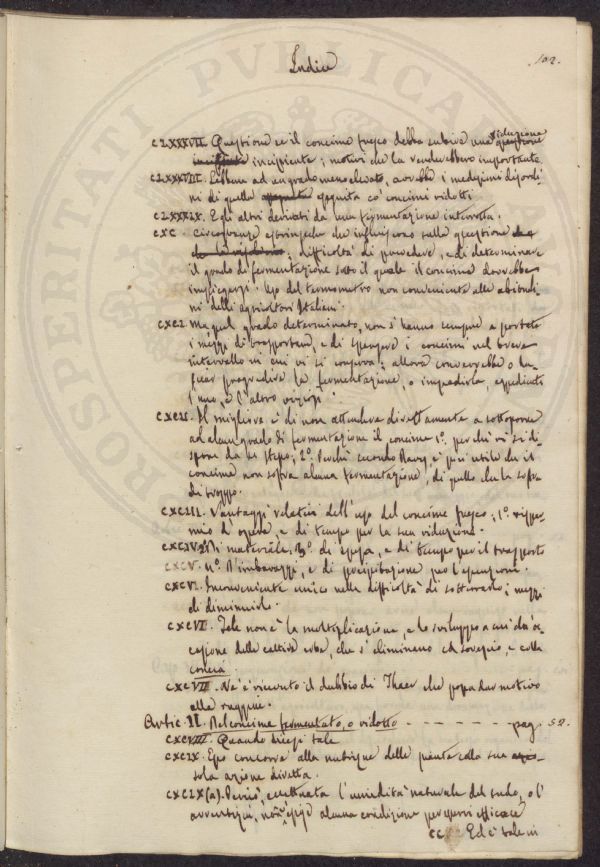 102.
Indice
CLXXXVII. Questione se il concime fresco debba subire una riduzione
incipiente; motivi che la renderebbero importante
CLXXXVIII. Ebbene ad un grado meno elevato, avrebbe i medesimi disordi-
ni di quella eseguita co' concimi ridotti
CLXXXIX. E gli altri derivati da una fermentazione interrotta.
CXC. Circostanze estrinseche che influiscono sulla questione
difficoltà di prevedere, e di determinare
il grado di fermentazione sotto il quale il concime dovrebbe
impiegarsi. Uso del termometro non conveniente alle abitudi-
ni degli agricoltori Italiani.
CXCI. Ma quel grado determinato, non si hanno sempre a portata
i mezzi di trasportare, e di spargere i concimi nel breve
intervallo in cui vi si conserva; allora converrebbe o la-
sciar progredire la fermentazione, o impedirla, espedienti
l'uno, e l'altro viziosi
CXCII. Il migliore è di non attendere direttamente a sottoporre
ad alcun grado di fermentazione il concime 1º. perchè vi si di-
spone da se stesso; 2º. Perchè secondo Davy, è più utile che il
concime non soffra alcuna fermentazione, di quello che la soffra
di troppo.
CXCIII. Vantaggi relativi dell'uso del concime fresco; 1º. rispar-
mio d'opera, e di tempo per la sua riduzione.
CXCIV. 2º Di materiale; 3º. di spesa, e di tempo per il trasporto
CXCV. 4º. D'imbarazzi, e di precipitazione per l'operazione.
CXCVI. Inconveniente unico nelle difficoltà di sotterrarlo; mezzi
di diminuirle.
CXCVII. Tale non è la moltiplicazione, e lo sviluppo a cui dà oc-
casione delle cattive erbe, che s'eliminano col sovescio, e colla
CXCVII. Nè è ricevuto il dubbio di Thaer che possa dar motivo
alla ruggine.
Artic. II. Del concime fermentato, o ridotto - - - - - - - pag. 52.
CXCVIII. Quando dicesi tale
CXCIX. Esso concorre alla nutrizione delle piante colla sua
sola azione diretta.
CXCIX(a). Perciò, eccettuata l'umidità naturale del suolo, o l'
avventizia, non esige alcuna condizione per essere efficace
CC. Ed è tale in